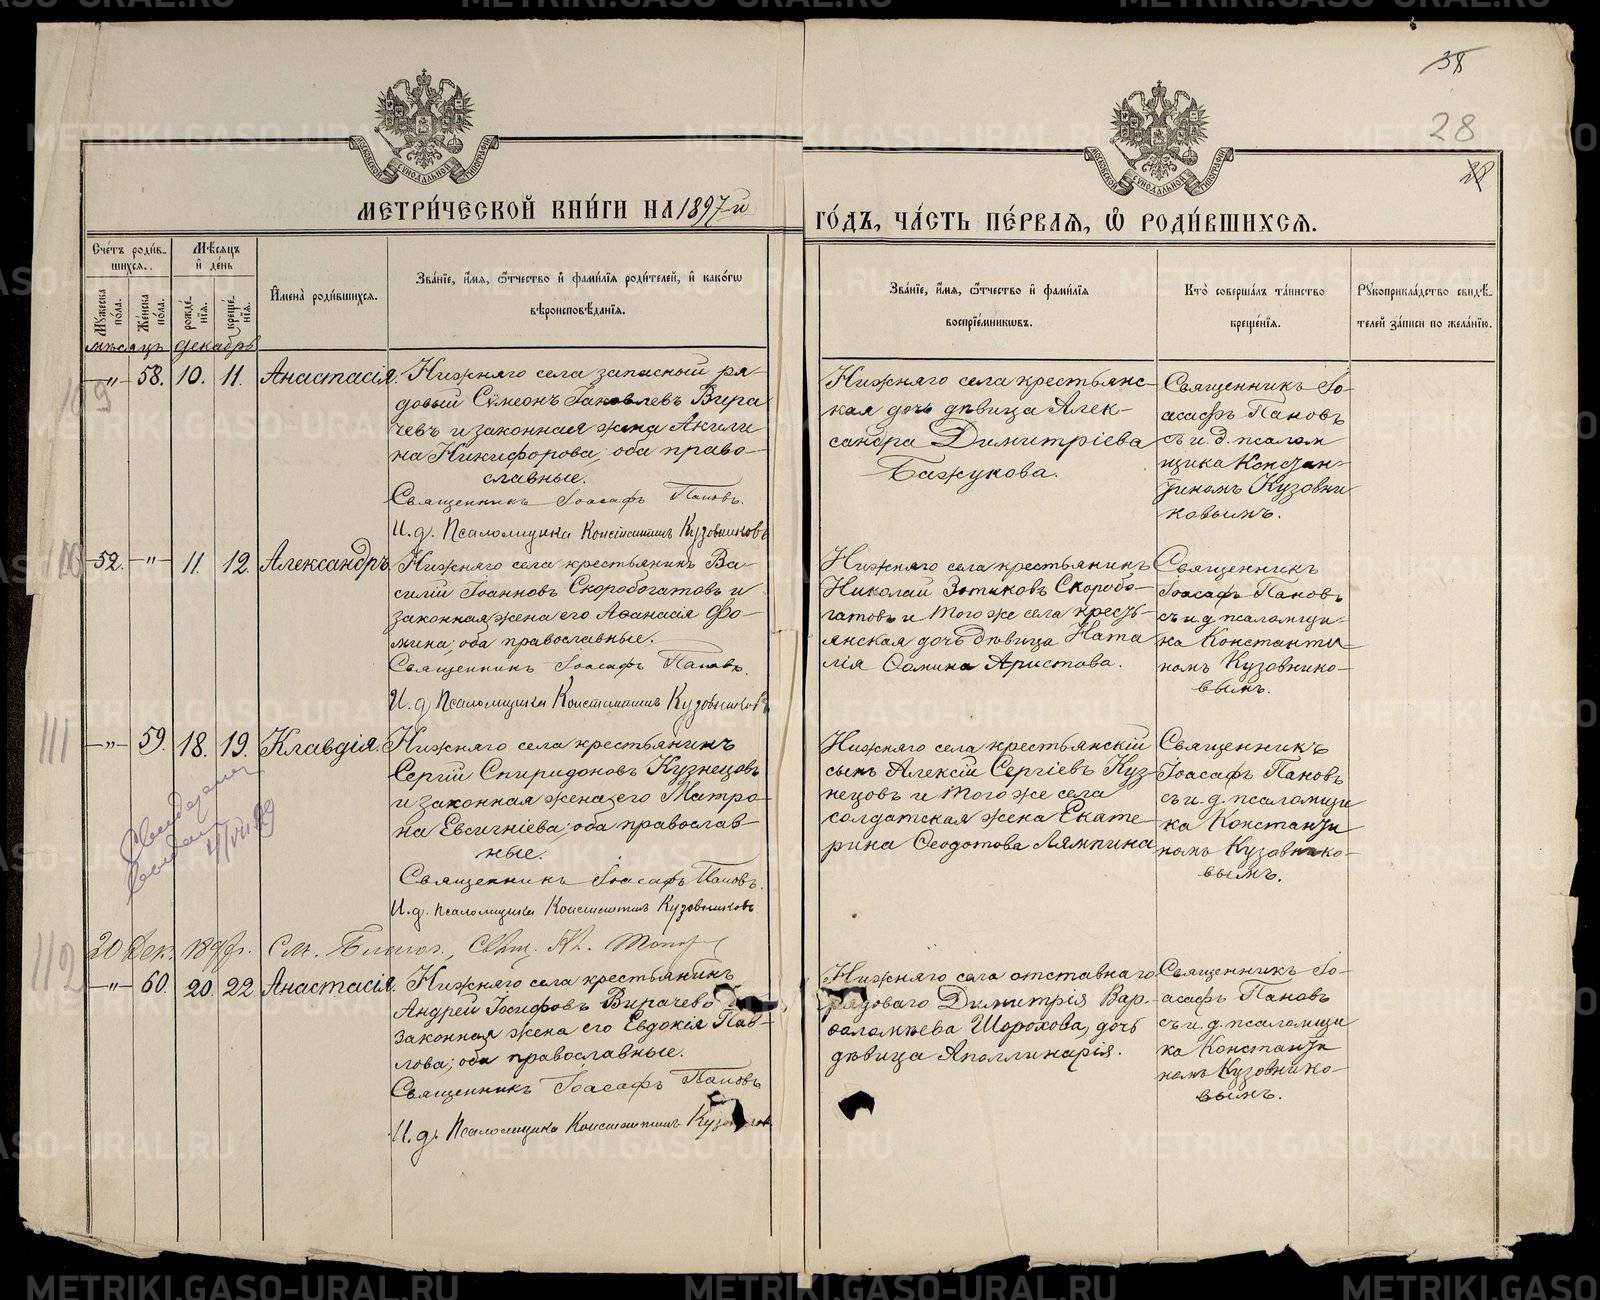 38
28
28
МОСКОВСКОЙ СѴНОДАЛЬНОЙ ТИПОГРАФІИ
МОСКОВСКОЙ СѴНОДАЛЬНОЙ ТИПОГРАФІИ
МЕТРИ́ЧЕСКОЙ КНИ́ГИ НА 1897-й
ГО́ДЪ, ЧА́СТЬ ПЕ́РВАЯ, Ѽ РОДИ́ВШИХСЯ.
Сче́тъ роди́в-
шихся.
Мѣ́сяцъ
и҆ де́нь
Мꙋ́жеска по́ла.
Же́нска по́ла.
рожде́нїя.
креще́нїя.
И҆мена̀ роди́вшихся.
Зва́нїе, и҆́мя, ѻ҆́тчество и҆ фами́лїя роди́телей, и҆ како́гѡ
вѣроисповѣ́данїя.
Зва́нїе, и҆́мя, ѻ҆́тчество и҆ фами́лїя
воспрїе́мникѡвъ.
Кто̀ соверша́лъ та́инство
креще́нїя.
Рꙋкоприкла́дство свидѣ́-
телей за́писи по жела́нїю.
мѣсяцъ декабрь
109
-"- 58. 10. 11. Анастасія.
Нижняго села запасный ря-
довый Сѵмеонъ Іаковлевъ Вира
чевъ и законная жена Акили
на Никифорова, оба право-
славные.
Священникъ Іоасафъ Пановъ.
И. д. Псаломщика Константинъ Кузовниковъ
Нижняго села крестьянс-
кая дочь дѣвица Алек-
сандра Димитріева
Бажукова.
Священникъ Іо-
асафъ Пановъ
съ и. д. псалом
щика Констан-
тиномъ Кузовни
ковымъ.
110
52. -"- 11. 12. Александръ
Нижняго села крестьянинъ Ва-
силій Іоанновъ Скоробогатовъ и
законная жена его Аѳанасія Ѳо-
мина; оба православные.
Священникъ Іоасафъ Пановъ.
И. д. Псаломщика Константинъ Кузовниковъ
Нижняго села крестьянинъ
Николай Зотиковъ Скоробо-
гатовъ и того же села кресть-
янская дочь дѣвица Ната
лія Ѳомина Аристова.
Священникъ
Іоасафъ Пановъ
съ и. д. псаломщи-
ка Константи-
номъ Кузовнико-
вымъ.
111
-"- 59. 18. 19. Клавдія.
Нижняго села крестьянинъ
Сергій Спиридоновъ Кузнецовъ
и законная жена его Матро-
на Евсигніева; оба православ-
ные.
Священникъ Іоасафъ Пановъ.
И. д. псаломщика Константинъ Кузовниковъ
Нижняго села крестьянскій
сынъ Алексій Сергіевъ Куз-
нецовъ и того же села
солдатская жена Екате-
рина Ѳеодотова Лямпина
Священникъ
Іоасафъ Пановъ
съ и. д. псаломщи
ка Константи
номъ Кузовнико-
вымъ.
20 Дек. 1897 г. См. Благоч., Свящ.
112
-"- 60. 20. 22. Анастасія.
Нижняго села крестьянинъ
Андрей Іосифовъ Вирачевъ
законная жена его Евдокія Пав-
лова; оба православные.
Священникъ Іоасафъ Пановъ
И. д. Псаломщика Константинъ
Нижняго села отставнаго
рядоваго Димитрія Вар-
ѳаломѣева Шорохова, дочь
дѣвица Аполлинарія.
Священникъ Іо-
асафъ Пановъ
съ и. д. псаломщи
ка Константи
номъ Кузовнико-
вымъ.
METRIKI.GASO-URAL.RU